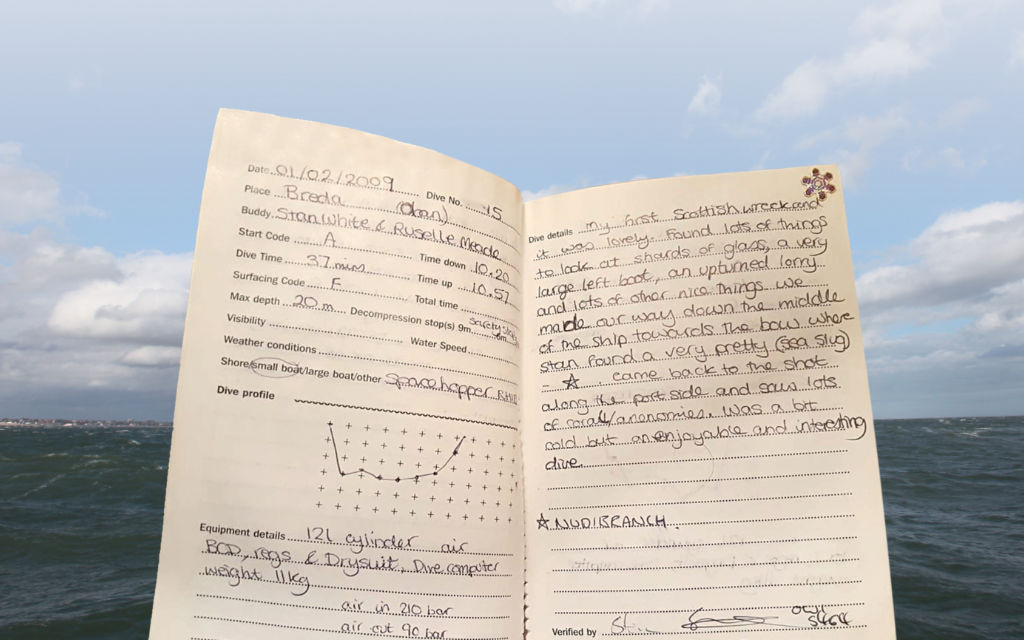 Date 01/02/2009 Dive No. 15
Place Breda (Oban)
Buddy Stan White & Ruselle Meade
Start Code A Time down 10.20
Dive Time 37 mins Time up 10.57
Surfacing Code F Total time
Max depth 20 m Decompression stop(s) 9m 6m safety stop
Visibility Water Speed
Weather conditions
Shore/small boat/large boat/other Spacehopper RHIB
Dive profile
Equipment details 12L cylinder air
BCD, regs & Drysuit, Dive computer
weight 11kg
air in 210 bar
air out 90 bar
Dive details my first Scottish wreck and
it was lovely. Found lots of things
to look at shards of glass, a very
large left boot, an upturned lorry
and lots of other nice things. we
made our way down the middle
of the ship towards the bow where
Stan found a very pretty (sea slug)
- ☆. came back to the shot
along the port side and saw lots
of corall/anonomies. Was a bit
cold but an enjoyable and interesting
dive.
☆ NUDIBRANCH.
Verified by